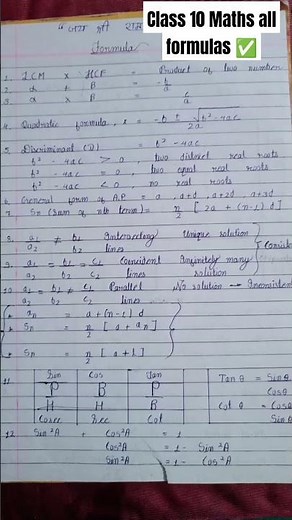 Class 10 Maths all
formulas ✅
"जय श्री राम
Formula
1. LCM x HCF = Product of two number
2. α + β = -b/a
3. α x β = c/a
4. Quadratic formula, x = -b ± √b²-4ac / 2a
5. Discriminant (D) = b² - 4ac
b² - 4ac > 0, two distinct real roots
b² - 4ac = 0, two equal real roots
b² - 4ac < 0, no real roots
6. General form of A.P = a, a+d, a+2d, a+3d
7. Sn (Sum of nth term) = n/2 [2a + (n-1)d]
8. a₁/a₂ ≠ b₁/b₂ Intersecting lines Unique solution
9. a₁/a₂ = b₁/b₂ = c₁/c₂ Coincident lines Infinitely many solution
10. a₁/a₂ = b₁/b₂ ≠ c₁/c₂ Parallel lines No solution → Inconsistent
* an = a + (n-1) d
* Sn = n/2 [a + an]
* Sn = n/2 [a + l]
11. Sin Cos Tan
P B P
H H B
Cosec Sec Cot
Tan θ = Sin θ / Cos θ
Cot θ = Cos θ / Sin θ
12. Sin²A + Cos²A = 1
Cos²A = 1 - Sin²A
Sin²A = 1 - Cos²A